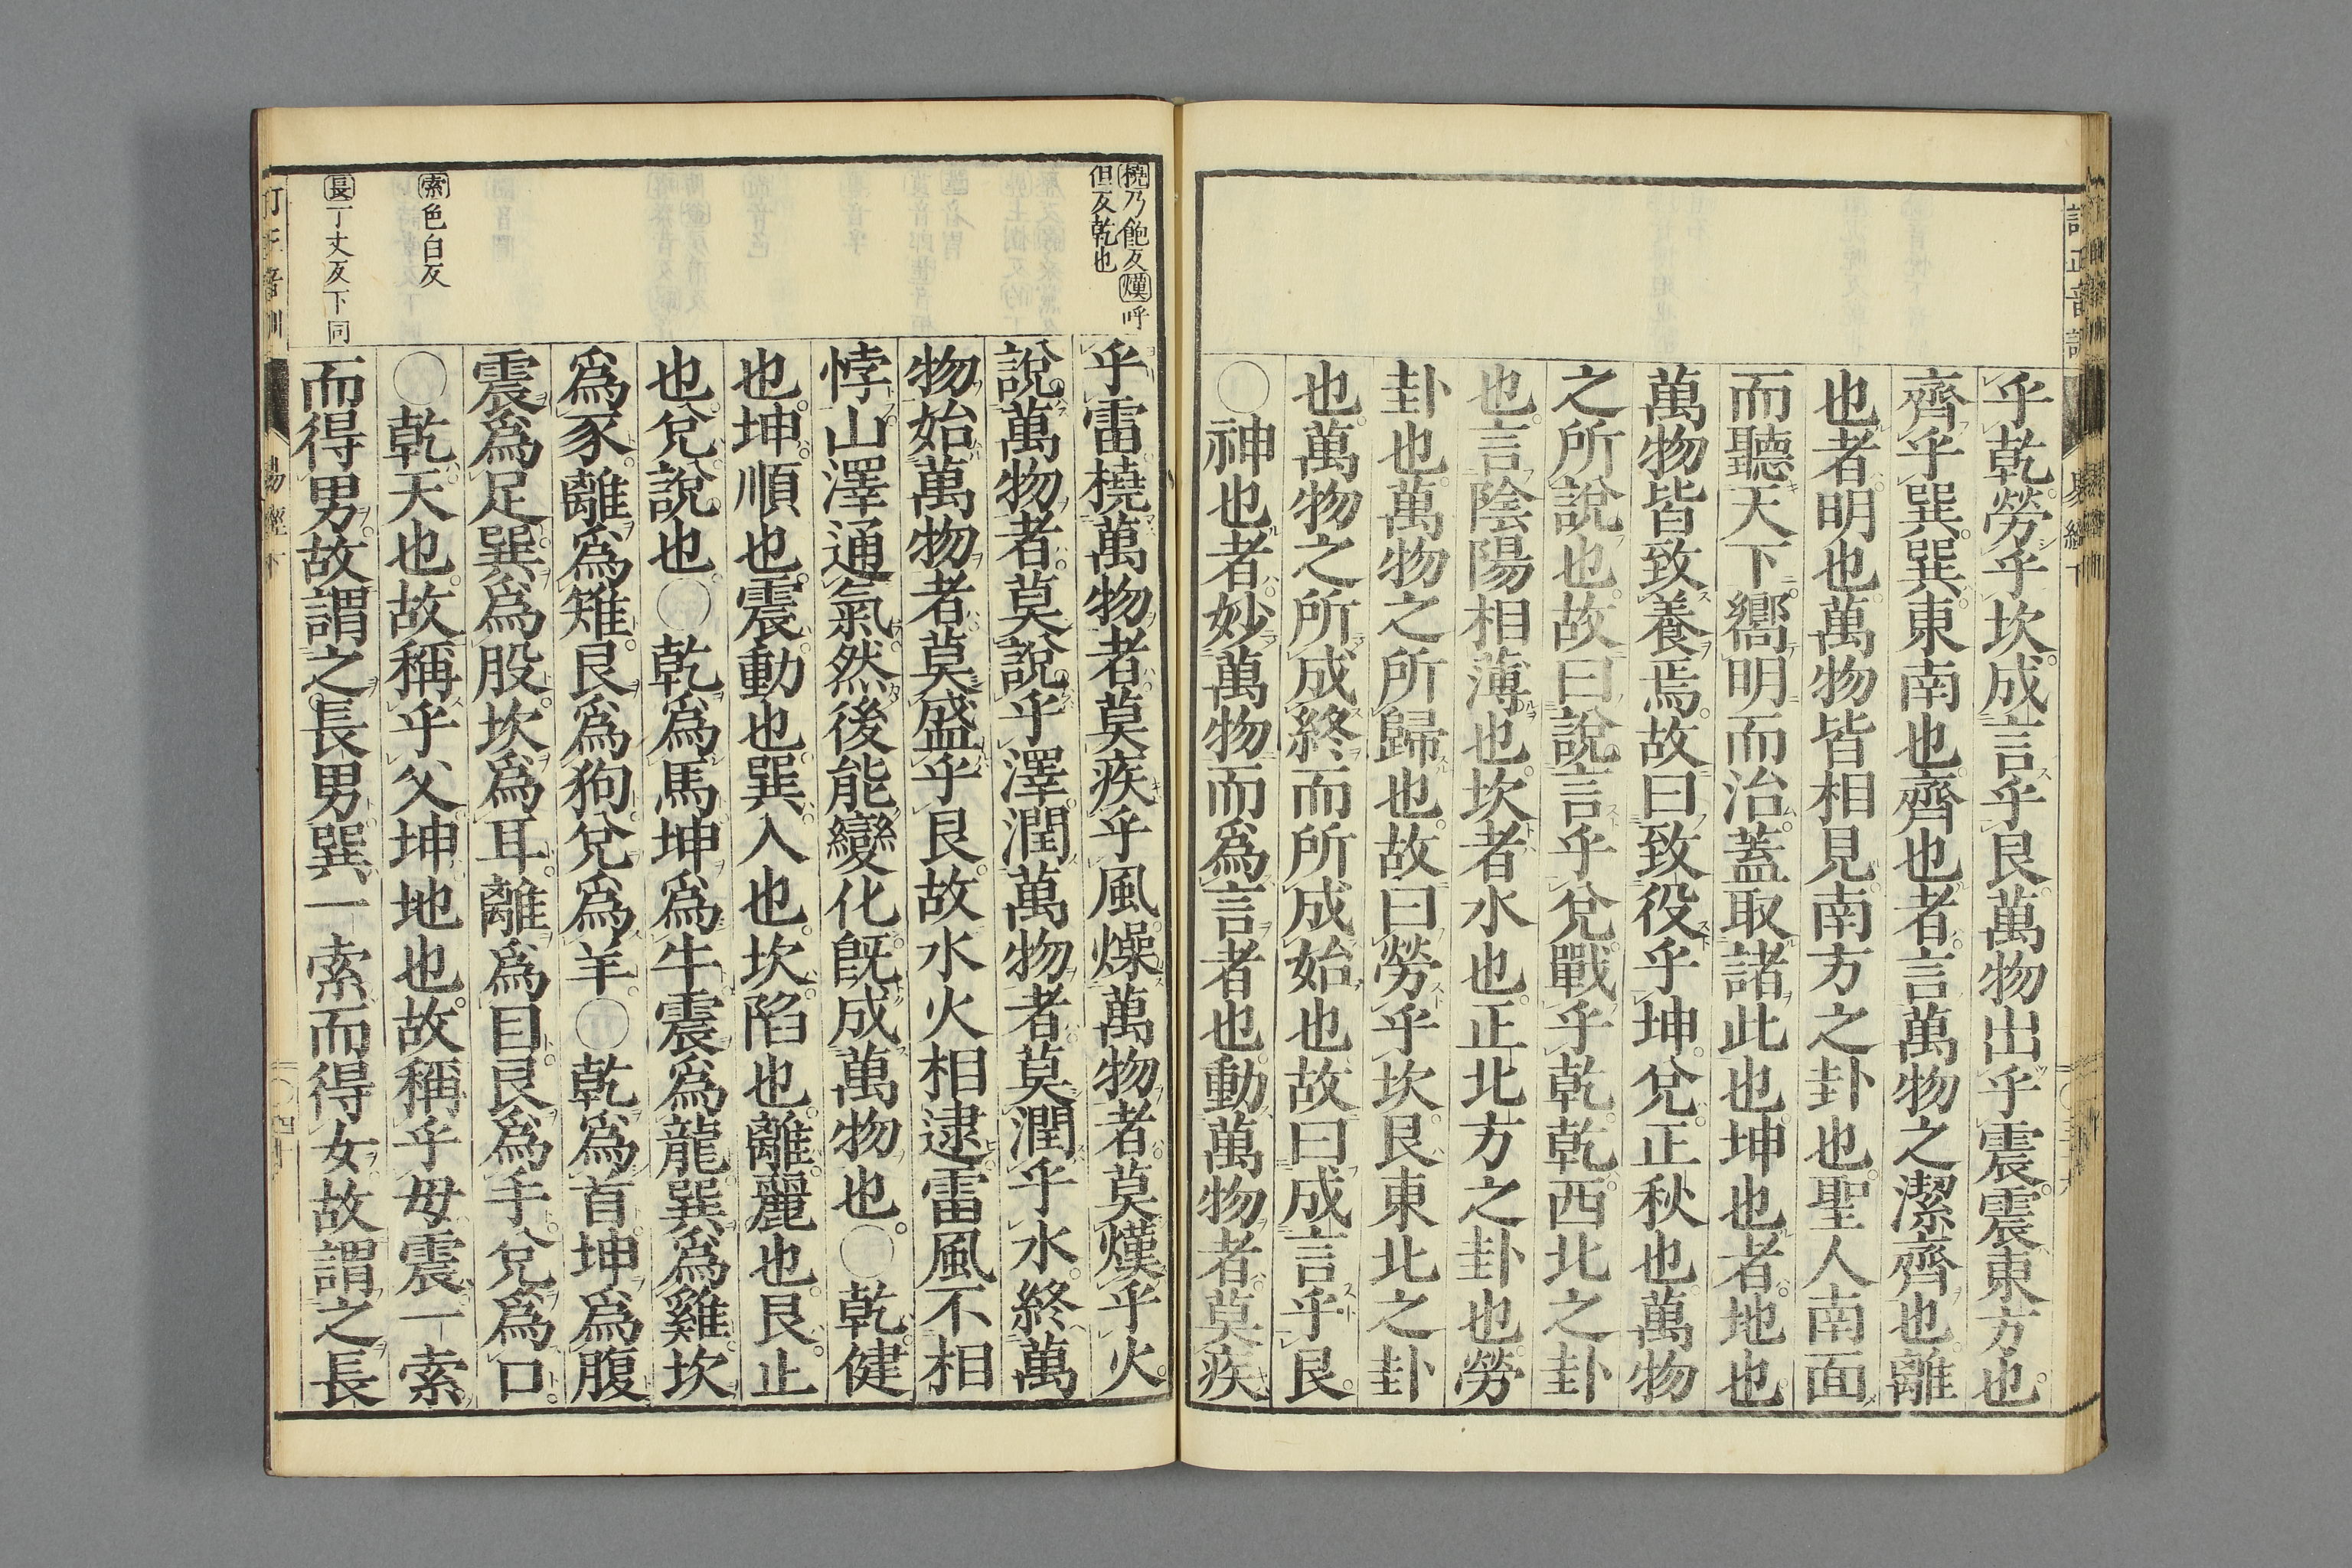 訂正音訓 易經下
乎乾勞乎坎成言乎艮萬物出乎震震東方也
齊乎巽巽東南也齊也者言萬物之潔齊也離
也者明也萬物皆相見南方之卦也聖人南面
而聽天下嚮明而治蓋取諸此也坤也者地也
萬物皆致養焉故曰致役乎坤兌正秋也萬物
之所說也故曰說言乎兌戰乎乾乾西北之卦
也言陰陽相薄也坎者水也正北方之卦也勞
卦也萬物之所歸也故曰勞乎坎艮東北之卦
也萬物之所成終而所成始也故曰成言乎艮
○神也者妙萬物而爲言者也動萬物者莫疾
橈乃飽反熯呼
但反乾也
乎雷橈萬物者莫疾乎風燥萬物者莫熯乎火
說萬物者莫說乎澤潤萬物者莫潤乎水終萬
物始萬物者莫盛乎艮故水火相逮雷風不相
悖山澤通氣然後能變化既成萬物也○乾健
也坤順也震動也巽入也坎陷也離麗也艮止
也兌說也○乾爲馬坤爲牛震爲龍巽爲雞坎
爲豕離爲雉艮爲狗兌爲羊○乾爲首坤爲腹
震爲足巽爲股坎爲耳離爲目艮爲手兌爲口
索色白反
○乾天也故稱乎父坤地也故稱乎母震一索
長丁丈反下同
而得男故謂之長男巽一索而得女故謂之長